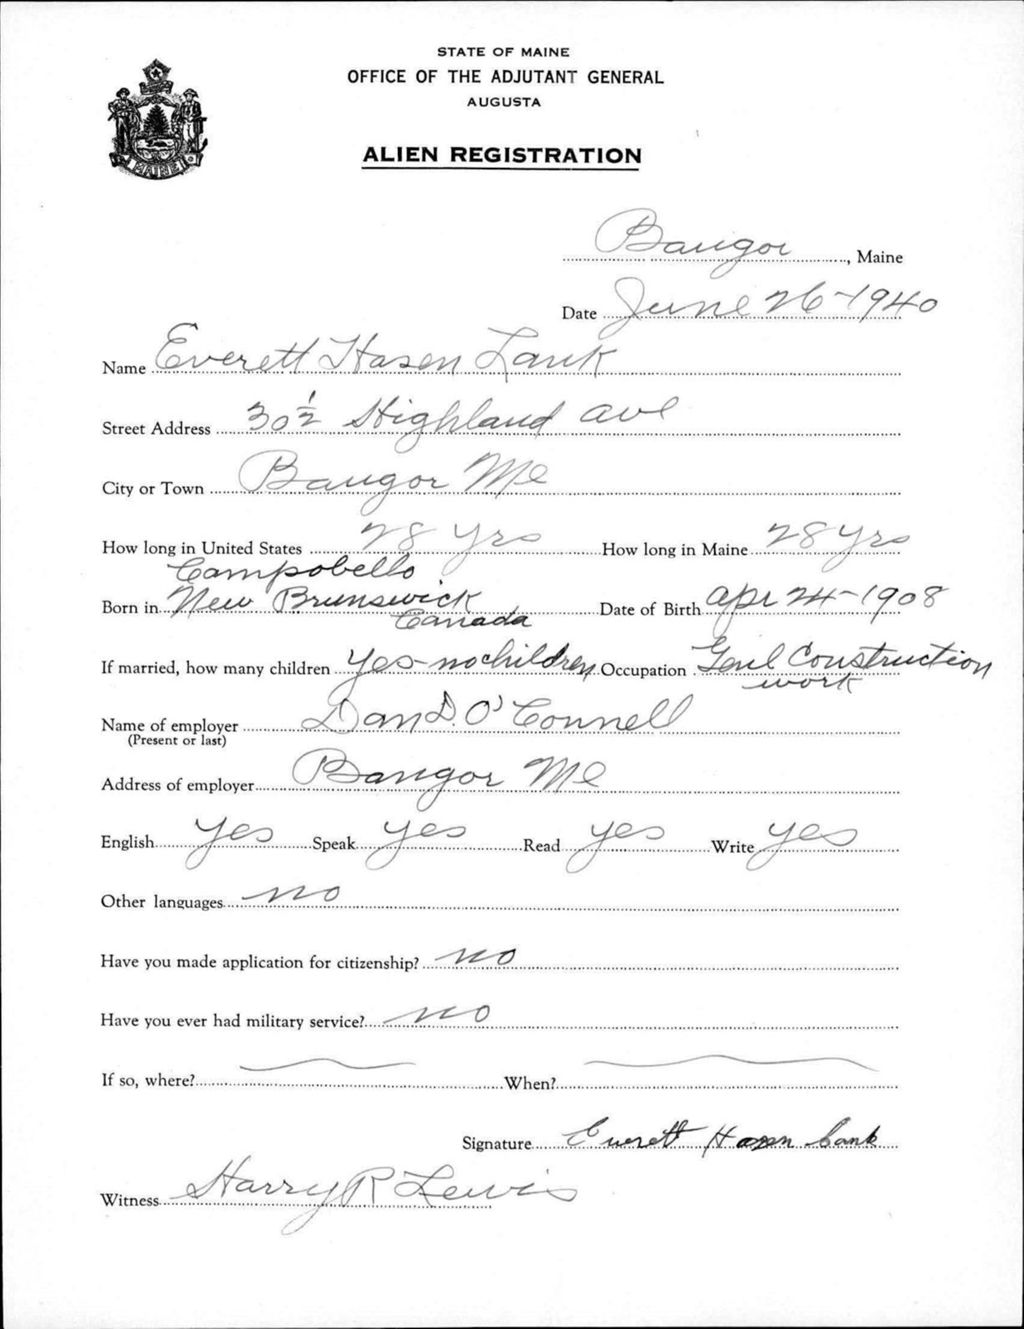 STATE OF MAINE
OFFICE OF THE ADJUTANT GENERAL
AUGUSTA
MAINE
ALIEN REGISTRATION
Bangor, Maine
Date June 26-1940
Name Everett Hazen Lank
Street Address 30½ Highland ave
City or Town Bangor Me
How long in United States 28 yrs How long in Maine 28 yrs
Campobello
Born in New Brunswick Date of Birth apr 24-1908
Canada
If married, how many children Yes-no children Occupation Genl Construction
work
Name of employer Dan D. O'Connell
(Present or last)
Address of employer Bangor Me
English yes Speak yes Read yes Write yes
Other languages no
Have you made application for citizenship? no
Have you ever had military service? no
If so, where? When?
Signature Everett Hazen Lank
Witness Harry R Lewis